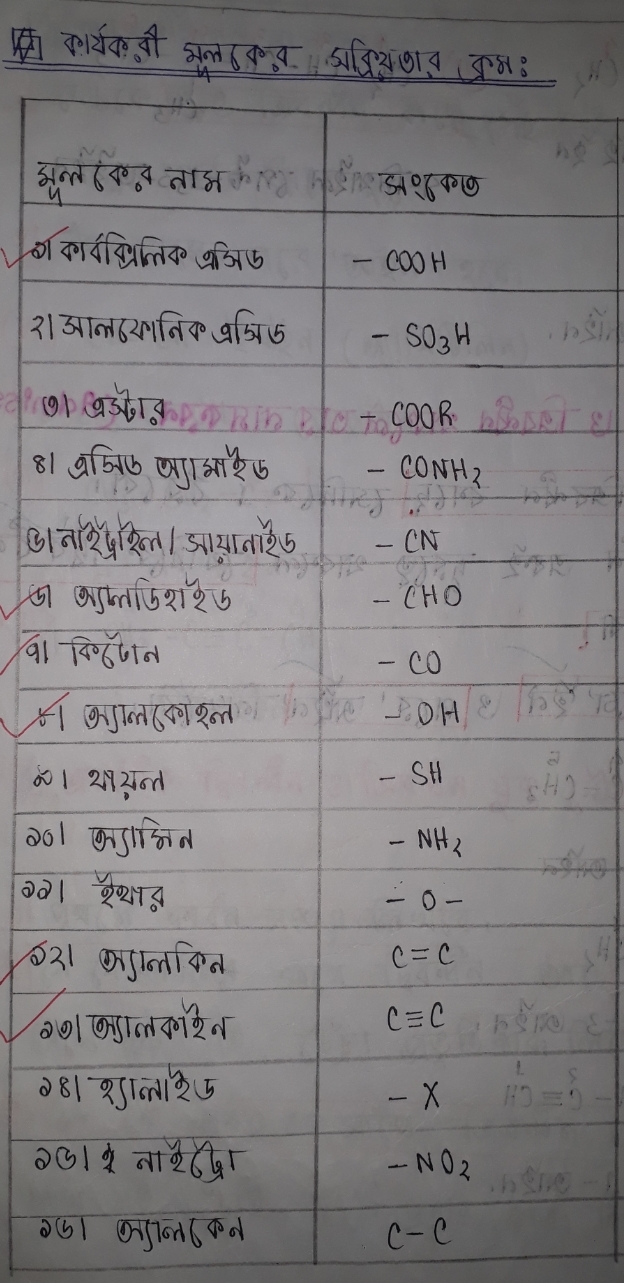 কার্যকরী মূলকের সক্রিয়তার ক্রমঃ
মূলকের নাম সংকেত
১। কার্বক্সিলিক এসিড - COOH
২। সালফোনিক এসিড - SO3H
৩। এস্টার - COOR
৪। এসিড অ্যামাইড - CONH2
৫। নাইট্রাইল / সায়ানাইড - CN
৬। অ্যালডিহাইড - CHO
৭। কিটোন - CO
৮। অ্যালকোহল - OH
৯। থায়ল - SH
১০। অ্যামিন - NH2
১১। ইথার - O -
১২। অ্যালকিন C = C
১৩। অ্যালকাইন C ≡ C
১৪। হ্যালাইড - X
১৫। নাইট্রো - NO2
১৬। অ্যালকেন C - C